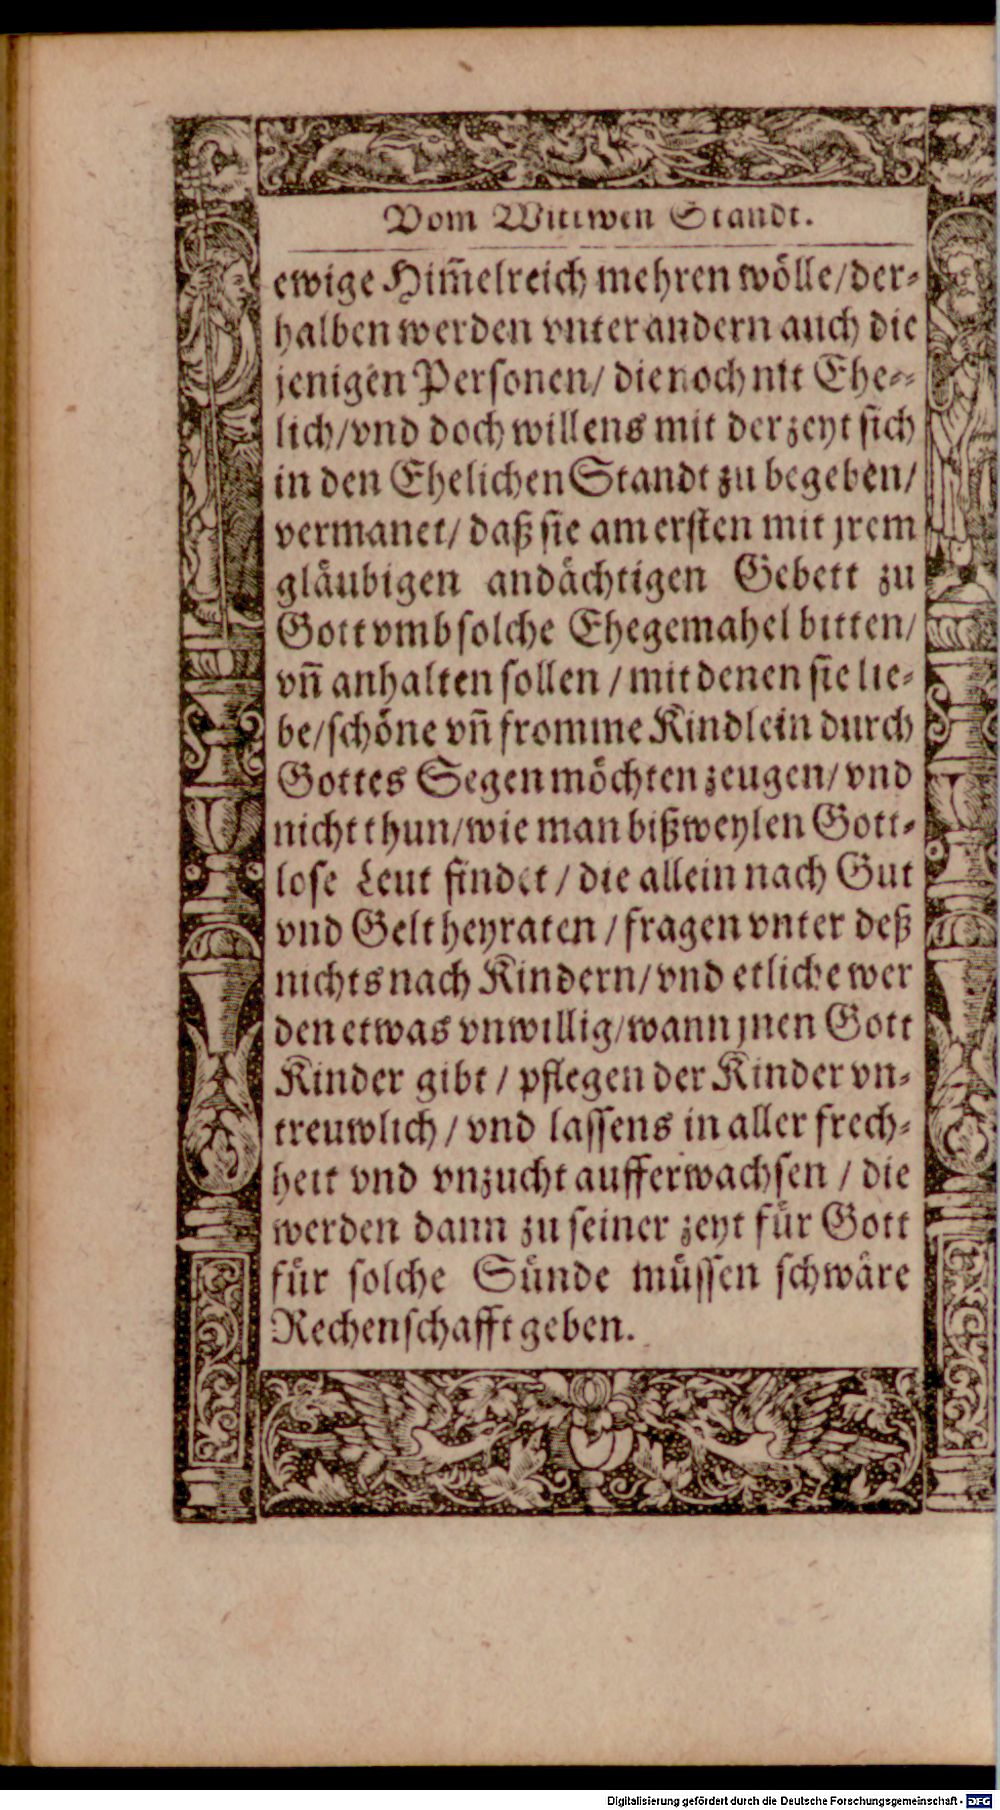 Vom Wittwen Standt.
ewige Him̃elreich mehren wölle/der-
halben werden vnter andern auch die
jenigen Personen/ die noch nit Ehe-
lich/vnd doch willens mit der zeyt sich
in den Ehelichen Standt zu begeben/
vermanet/ daß sie am ersten mit jrem
gläubigen andächtigen Gebett zu
Gott vmb solche Ehegemahel bitten/
vñ anhalten sollen / mit denen sie lie-
be/schöne vñ fromme Kindlein durch
Gottes Segen möchten zeugen/ vnd
nicht thun/wie man bißweylen Gott-
lose Leut findet / die allein nach Gut
vnd Gelt heyraten / fragen vnter deß
nichts nach Kindern/ vnd etliche wer
den etwas vnwillig/wann jnen Gott
Kinder gibt / pflegen der Kinder vn-
treuwlich / vnd lassens in aller frech-
heit vnd vnzucht aufferwachsen / die
werden dann zu seiner zeyt für Gott
für solche Sünde müssen schwäre
Rechenschafft geben.
Digitalisierung gefördert durch die Deutsche Forschungsgemeinschaft - DFG